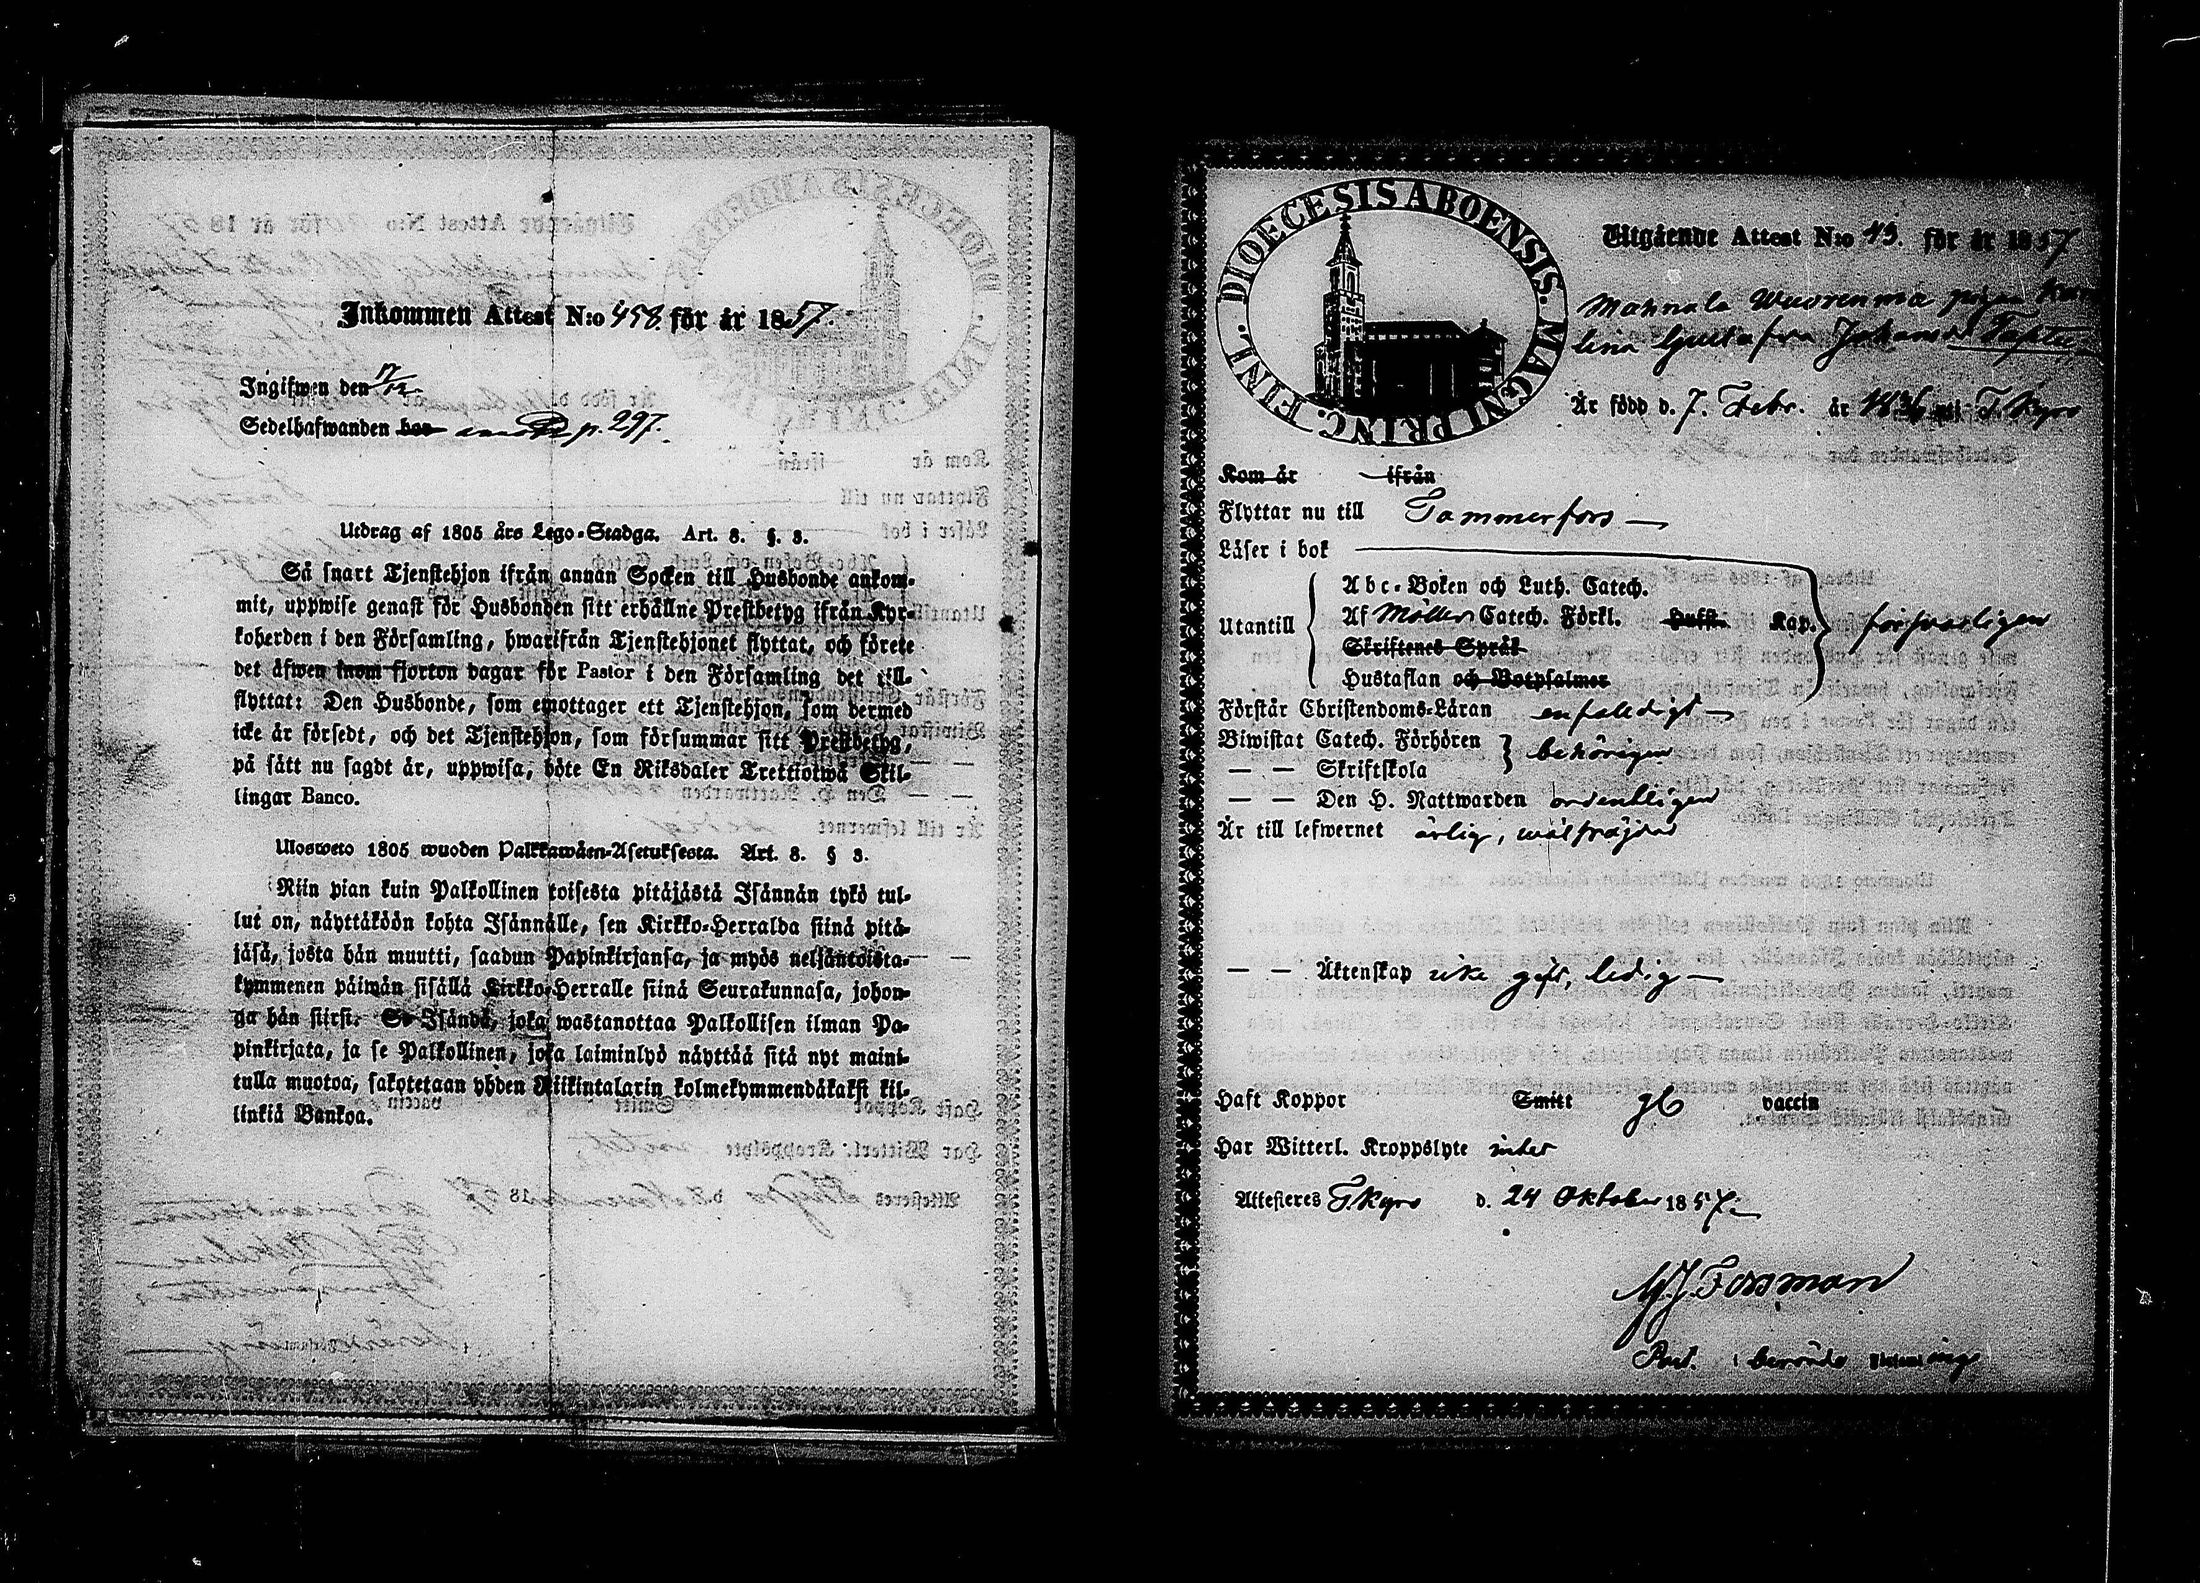 Inkommen Attest N:o 458 för år 1857.
Ingifwen den 17/12
Sedelhafwanden bor p. 297.
Utdrag af 1805 års Lego-Stadga. Art. 8. §. 3.
Så snart Tjenstehjon ifrån annan Socken till Husbonde ankom-
mit, uppwise genast för Husbonden sitt erhållne Prestbetyg ifrån Kyr-
koherden i den Församling, hwarifrån Tjenstehjonet flyttat, och förete
det äfwen inom fjorton dagar för Pastor i den Församling det till-
flyttat: Den Husbonde, som emottager ett Tjenstehjon, som dermed
icke är försedt, och det Tjenstehjon, som försummar sitt Prestbetyg,
på sätt nu sagdt är, uppwisa, böte En Riksdaler Trettiotwå Skil-
lingar Banco.
Ulosweto 1805 wuoden Palkkawäen-Asetuksesta. Art. 8. § 3.
Niin pian kuin Palkollinen toisesta pitäjästä Isännän tykö tul-
lut on, näyttäköön kohta Isännälle, sen Kirkko-Herralda siinä pitä-
jäsä, josta hän muutti, saadun Papinkirjansa, ja myös neljäntoista-
kymmenen päiwän sisällä Kirkko-Herralle siinä Seurakunnasa, johon-
ga hän siirsi. Se Isändä, joka wastanottaa Palkollisen ilman Pa-
pinkirjata, ja se Palkollinen, joka laiminlyö näyttää sitä nyt maini-
tulla muotoa, sakotetaan yhden Riikintalarin kolmekymmendäkaksi kil-
linkiä Bankoa.
DIOECESIS ABOENSIS. MAGNI PRINC. FINL.
Utgående Attest N:o 43. för år 1857
Mahnala Wuorenma pigan Karo
lina Gustafva Johansd
Är född d. 7. Febr. år 1836 uti T. Kyro
Kom år ifrån
Flyttar nu till Tammerfors
Läser i bok
Utantill
Abc-Boken och Luth. Catech.
Af Möllers Catech. Förkl. Kap.
Skriftenes Språk
Hustaflan och Botpsalmer
försvarligen
Förstår Christendoms-Läran enfaldigt
Biwistat Catech. Förhören
— — Skriftskola
behörigen
— — Den H. Nattwarden ordentligen
Är till lefwernet ärlig, wälfräjdad
— — Äktenskap icke gift, ledig
Haft Koppor Smitt vaccin
Har Witterl. Kroppslyte intet
Attesteras T. Kyro d. 24 Oktober 1857
Forsman
Past. i